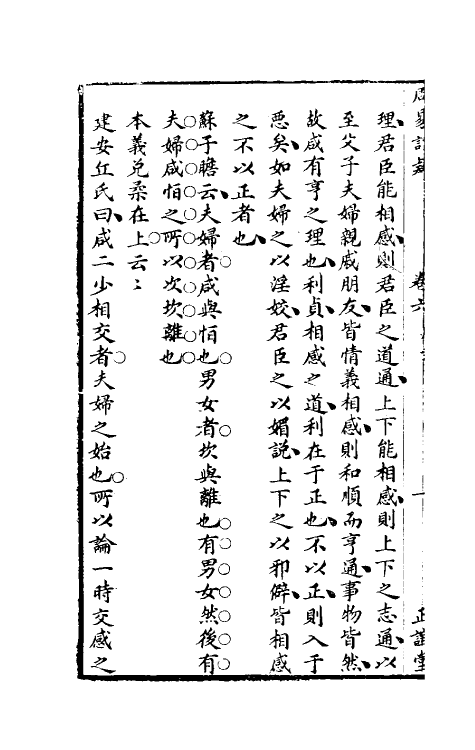 理君臣能相感則君臣之道通上下能相感則上下之志通以
至父子夫婦親戚朋友皆情義相感則和順而亨通事物皆然
故咸有亨之理也利貞相感之道利在于正也不以正則入于
惡矣如夫婦之以淫姣君臣之以媚説上下之以邪僻皆相感
之不以正者也
蘇子瞻云夫婦者咸與恒也男女者坎與離也有男女然後有
夫婦咸恒之所以次坎離也
本義兌柔在上云〻
建安丘氏曰咸二少相交者夫婦之始也所以論一時交感之